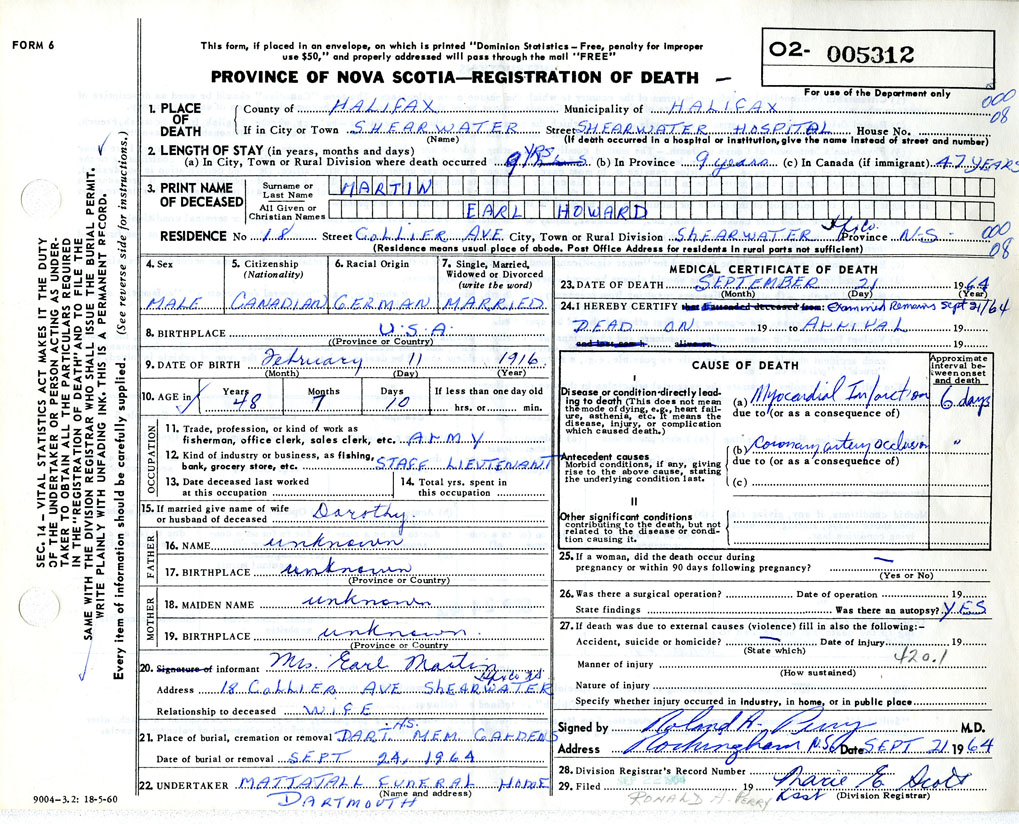 FORM 6
This form, if placed in an envelope, on which is printed "Dominion Statistics – Free, penalty for improper
use $50," and properly addressed will pass through the mail "FREE"
PROVINCE OF NOVA SCOTIA—REGISTRATION OF DEATH –
02- 005312
For use of the Department only
000
08
1. PLACE OF DEATH
County of HALIFAX Municipality of HALIFAX
If in City or Town SHEARWATER Street SHEARWATER HOSPITAL House No.
(Name) (If death occurred in a hospital or institution, give name instead of street and number)
2. LENGTH OF STAY (in years, months and days)
(a) In City, Town or Rural Division where death occurred 9 YRS (b) In Province 9 years (c) In Canada (if immigrant) 47 YEARS
3. PRINT NAME OF DECEASED
Surname or Last Name MARTIN
All Given or Christian Names EARL HOWARD
RESIDENCE No 18 Street COLLIER AVE City, Town or Rural Division SHEARWATER Hfx Co. Province N.S.
(Residence means usual place of abode. Post Office Address for residents in rural parts not sufficient)
000
08
4. Sex
MALE
5. Citizenship (Nationality)
CANADIAN
6. Racial Origin
GERMAN
7. Single, Married, Widowed or Divorced (write the word)
MARRIED
8. BIRTHPLACE U.S.A.
(Province or Country)
9. DATE OF BIRTH February 11 1916
(Month) (Day) (Year)
10. AGE in Years 48 Months 7 Days 10 If less than one day old hrs. or min.
OCCUPATION
11. Trade, profession, or kind of work as
fisherman, office clerk, sales clerk, etc. ARMY
12. Kind of industry or business, as fishing,
bank, grocery store, etc. STAFF LIEUTENANT
13. Date deceased last worked at this occupation
14. Total yrs. spent in this occupation
15. If married give name of wife
or husband of deceased Dorothy.
FATHER
16. NAME unknown
17. BIRTHPLACE unknown
(Province or Country)
MOTHER
18. MAIDEN NAME unknown
19. BIRTHPLACE unknown.
(Province or Country
20. Signature of informant Mrs. Earl Martin
Address 18 COLLIER AVE SHEARWATER Hfx Co NS
Relationship to deceased WIFE
21. Place of burial, cremation or removal DART. MEM. GARDENS N.S.
Date of burial or removal SEPT 24, 1964
22. UNDERTAKER MATTATALL FUNERAL HOME
(Name and address)
DARTMOUTH
9004-3.2: 18-5-60
MEDICAL CERTIFICATE OF DEATH
23. DATE OF DEATH SEPTEMBER 21 1964
(Month) (Day) (Year)
24. I HEREBY CERTIFY that I attended deceased from: Examined Remains Sept 21/64
DEAD ON 19 to ARRIVAL 19
and last saw h alive on 19
CAUSE OF DEATH
Approximate interval between onset and death
I
Disease or condition directly leading to death (This does not mean the mode of dying, e.g., heart failure, asthenia, etc. It means the disease, injury, or complication which caused death.)
(a) Myocardial Infarction 6 days
due to (or as a consequence of)
Antecedent causes
Morbid conditions, if any, giving rise to the above cause, stating the underlying condition last.
(b) Coronary artery occlusion "
due to (or as a consequence of)
(c)
II
Other significant conditions
contributing to the death, but not related to the disease or condition causing it.
25. If a woman, did the death occur during
pregnancy or within 90 days following pregnancy? —
(Yes or No)
26. Was there a surgical operation? Date of operation 19
State findings Was there an autopsy? YES
27. If death was due to external causes (violence) fill in also the following:–
Accident, suicide or homicide? — Date of injury 19
(State which)
420.1
Manner of injury
(How sustained)
Nature of injury
Specify whether injury occurred in industry, in home, or in public place
Signed by Roland H. Perry M.D.
Address Rockingham N.S. Date SEPT 21 1964
28. Division Registrar's Record Number
29. Filed 19 Marie E Scott
(Division Registrar)
RONALD H. PERRY
SEC. 14 – VITAL STATISTICS ACT MAKES IT THE DUTY
OF THE UNDERTAKER OR PERSON ACTING AS UNDER-
TAKER TO OBTAIN ALL THE PARTICULARS REQUIRED
IN THE "REGISTRATION OF DEATH" AND TO FILE THE
SAME WITH THE DIVISION REGISTRAR WHO SHALL ISSUE THE BURIAL PERMIT.
WRITE PLAINLY WITH UNFADING INK. THIS IS A PERMANENT RECORD.
Every item of information should be carefully supplied. (See reverse side for instructions.)